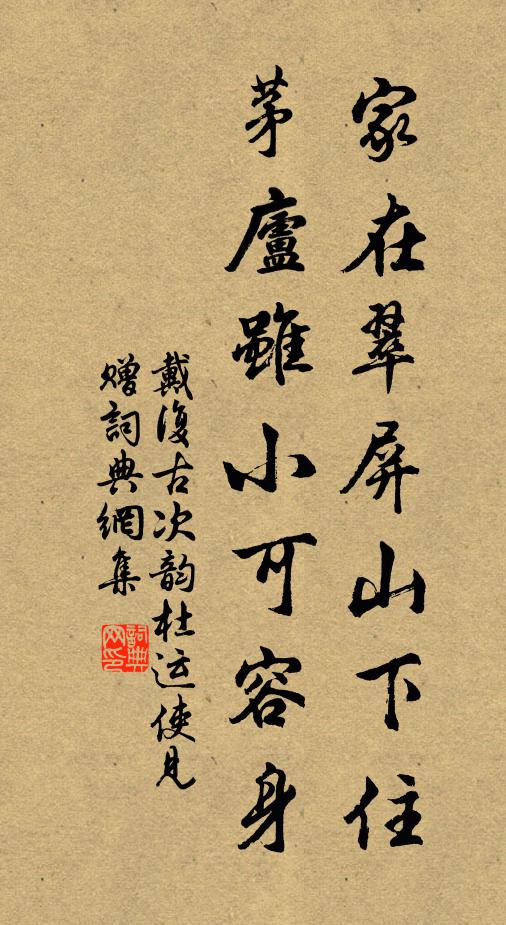 家在翠屏山下住
茅廬雖小可容身
戴復古次韵杜运使見
赠詞典網集
詞典网印